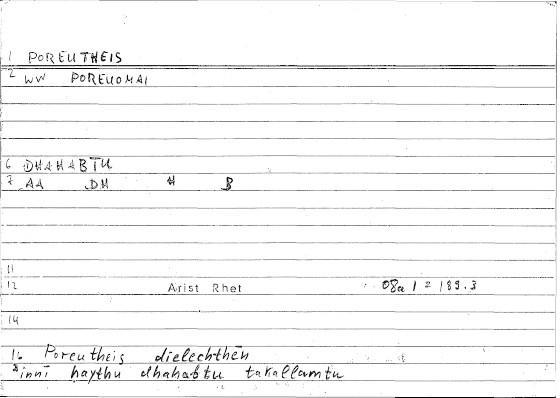 1 POREUTHEIS
2 WW POREUOMAI
6 DHAHABTU
7 AA DH H B
11
12 Arist Rhet 08a 12 189.3
14
16 Poreutheis dielechthēn
innī haythu dhahabtu takallamtu